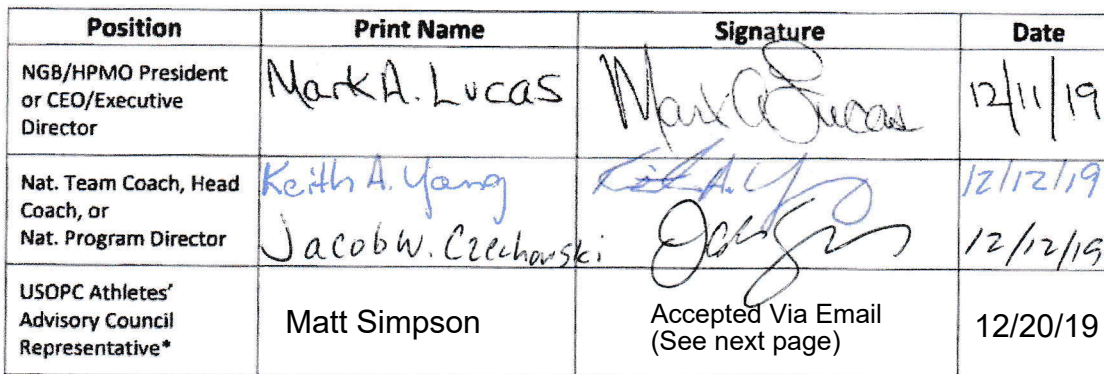 Position Print Name Signature Date
NGB/HPMO President
or CEO/Executive
Director
Mark A. Lucas
Mark A Lucas
12/11/19
Nat. Team Coach, Head
Coach, or
Nat. Program Director
Keith A. Young
Keith A. Y
12/12/19
Jacob W. Czechowski
12/12/19
USOPC Athletes'
Advisory Council
Representative*
Matt Simpson
Accepted Via Email
(See next page)
12/20/19